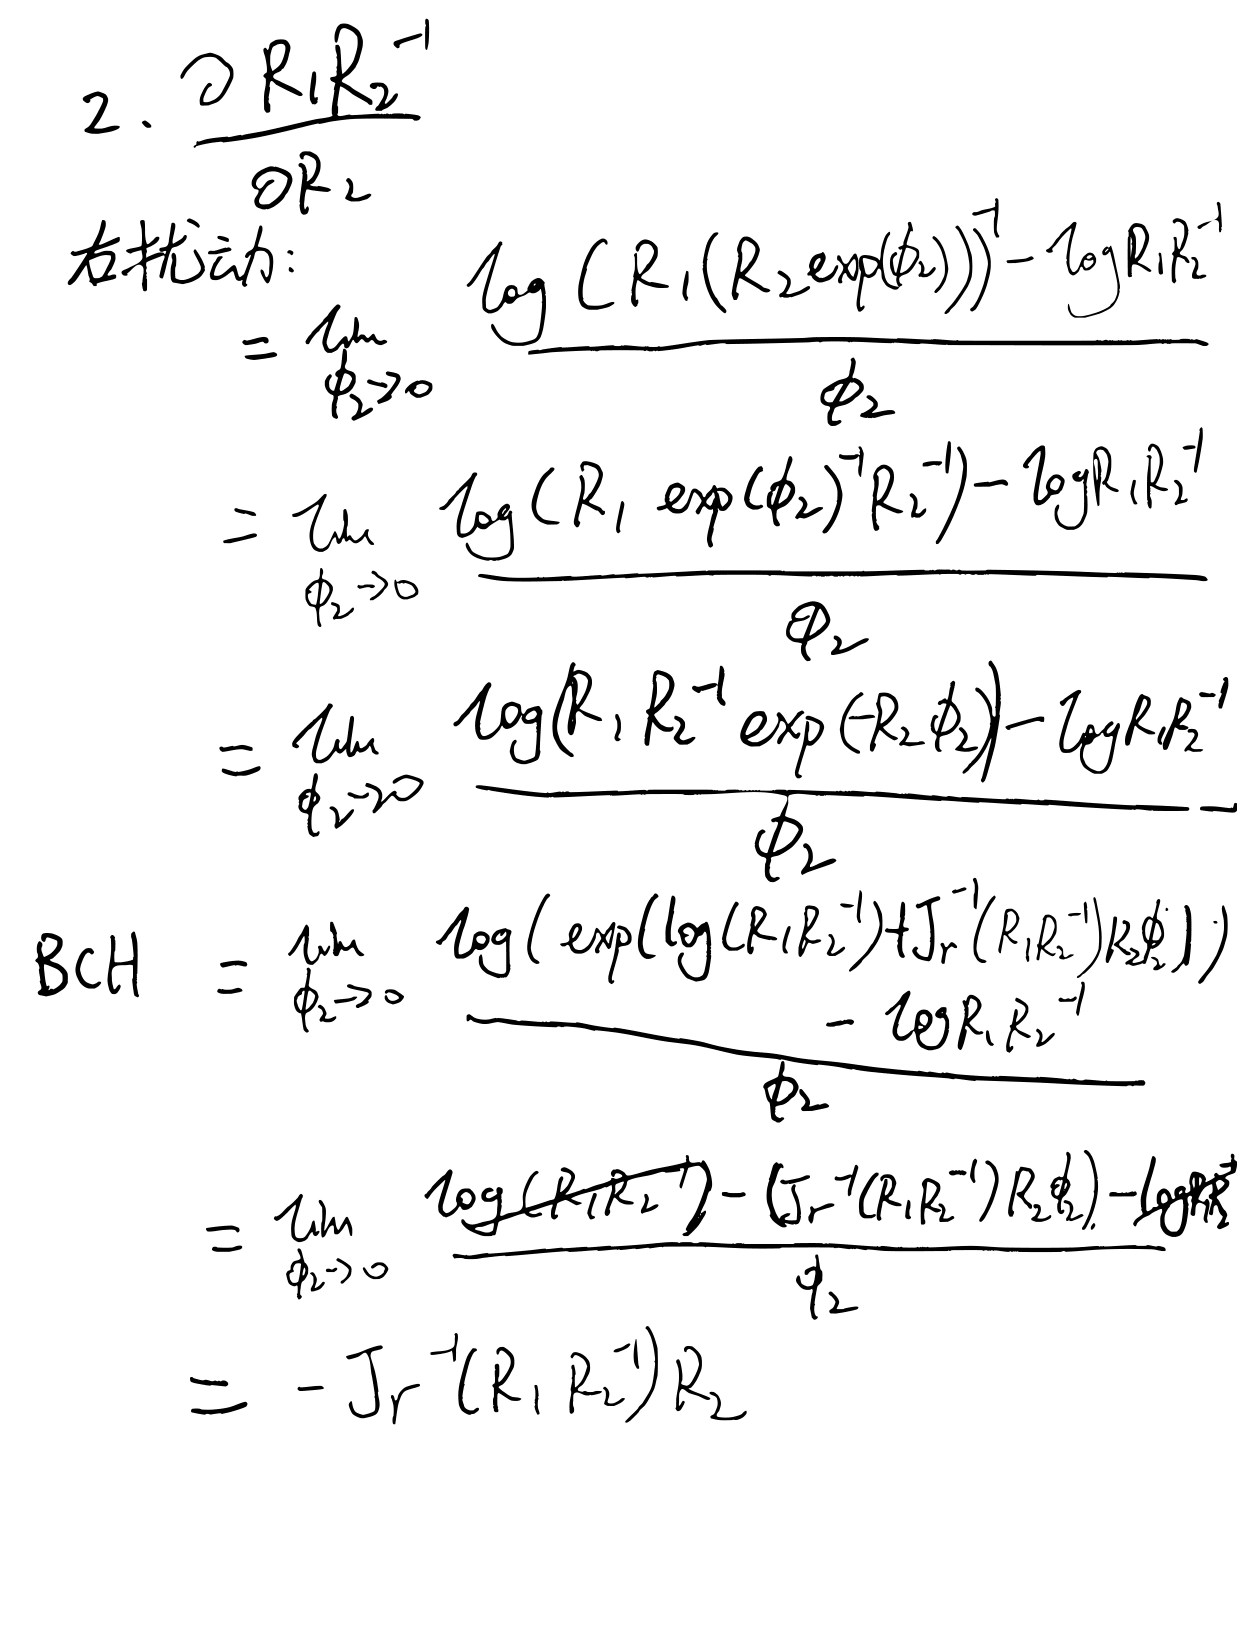 2. ∂R₁R₂⁻¹
∂R₂
右扰动:
= lim log(R₁(R₂exp(ϕ₂)))⁻¹ - logR₁R₂⁻¹
ϕ₂→0 ϕ₂
= lim log(R₁ exp(ϕ₂)⁻¹R₂⁻¹) - logR₁R₂⁻¹
ϕ₂→0 ϕ₂
= lim log(R₁R₂⁻¹exp(-R₂ϕ₂)) - logR₁R₂⁻¹
ϕ₂→0 ϕ₂
BCH = lim log(exp(log(R₁R₂⁻¹)+Jr⁻¹(R₁R₂⁻¹)R₂ϕ₂))
ϕ₂→0 - logR₁R₂⁻¹
ϕ₂
= lim log(R₁R₂⁻¹) - (Jr⁻¹(R₁R₂⁻¹)R₂ϕ₂) - logR₁R₂⁻¹
ϕ₂→0 ϕ₂
= - Jr⁻¹(R₁R₂⁻¹)R₂